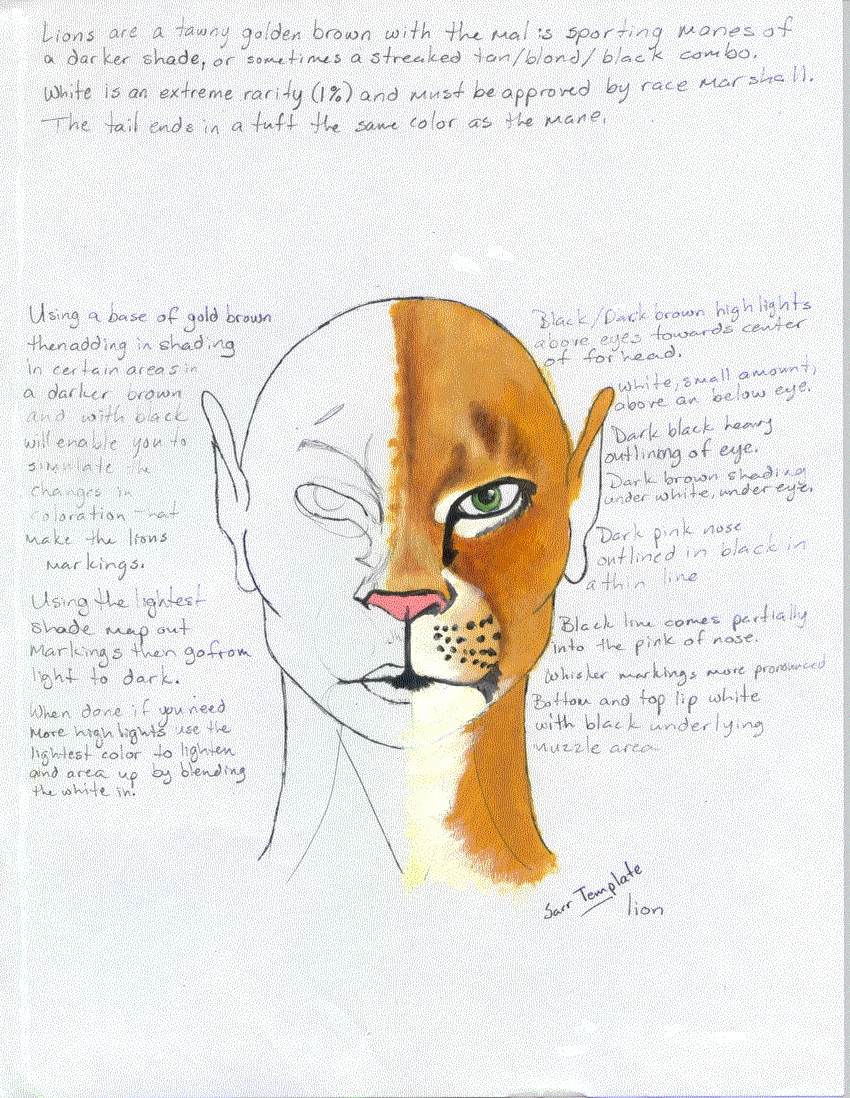 Lions are a tawny golden brown with the mal's sporting manes of
a darker shade, or sometimes a streaked tan/blond/black combo.
White is an extreme rarity (1%) and must be approved by race marshall.
The tail ends in a tuft the same color as the mane.
Using a base of gold brown
then adding in shading
in certain areas in
a darker brown
and with black
will enable you to
simulate the
changes in
coloration that
make the lions
markings.
Using the lightest
shade map out
markings then go from
light to dark.
When done if you need
more high lights use the
lightest color to lighten
and area up by blending
the white in.
Black/Dark brown high lights
above eyes towards center
of forhead.
white, small amount,
above an below eye.
Dark black heavy
outlining of eye.
Dark brown shading
under white, under eye.
Dark pink nose
outlined in black in
a thin line
Black line comes partially
into the pink of nose.
Whisker markings more pronounced
Bottom and top lip white
with black underlying
muzzle area
Sarr Template
lion